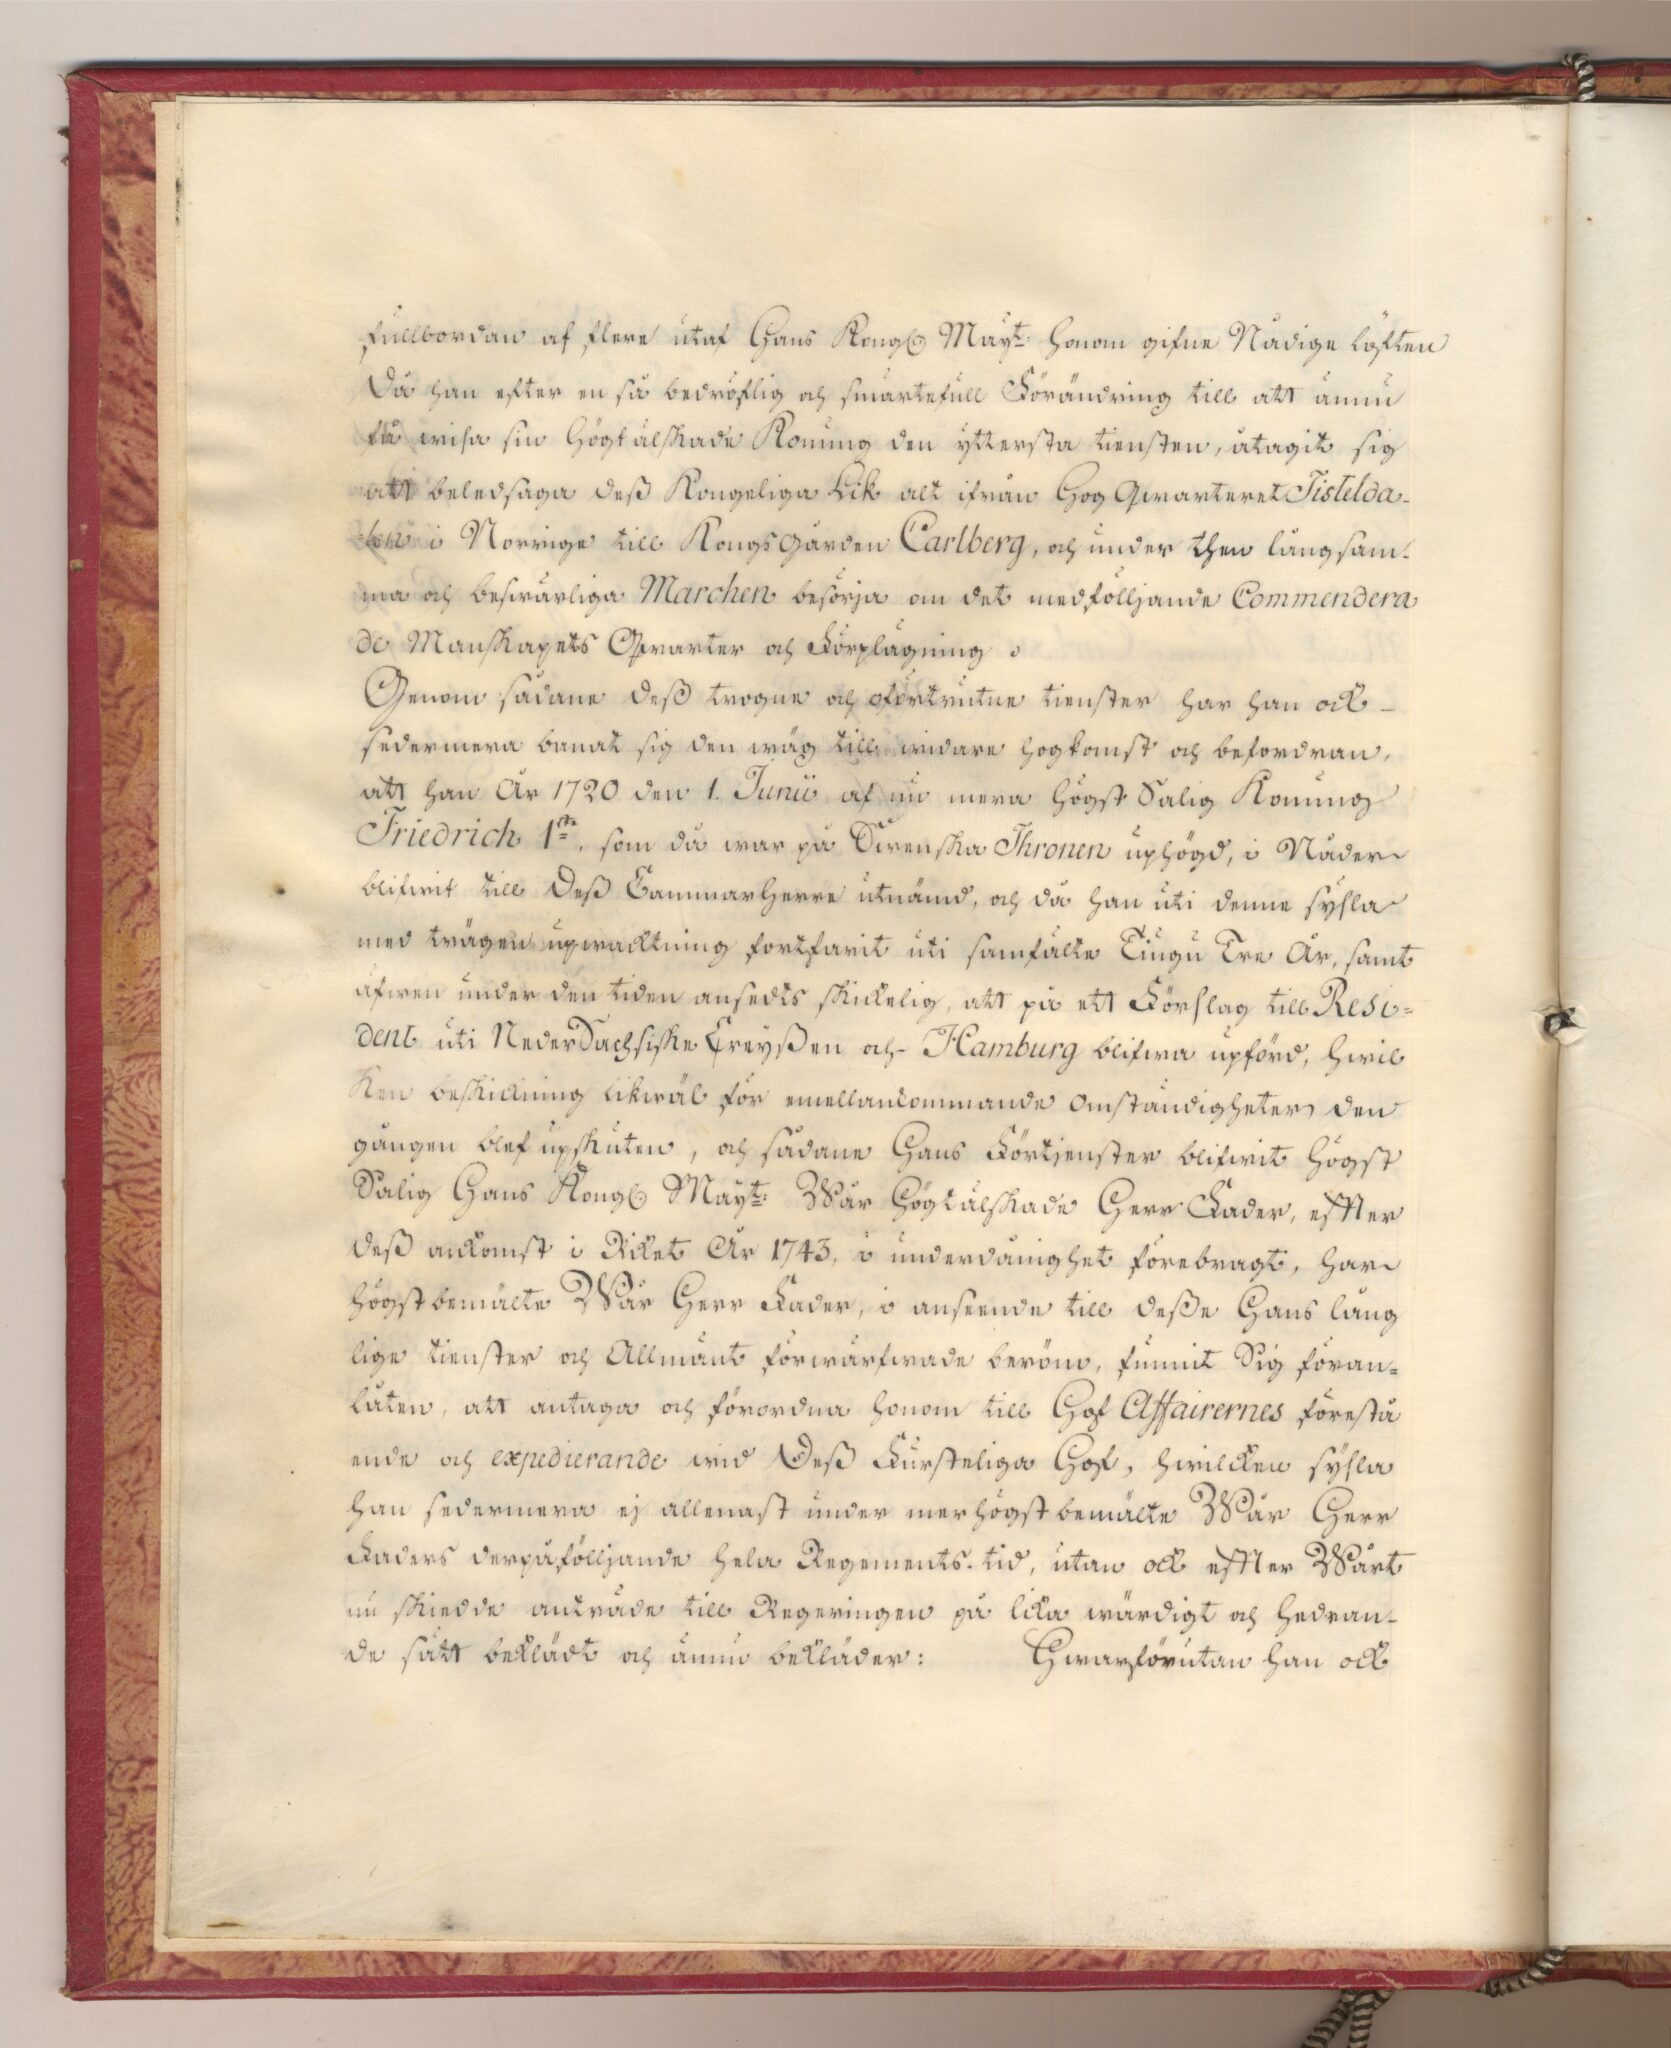 fullbordan af flere utaf Hans Kongl. Mayt: honom gifne Nådige löften
Då han efter en så bedröflig och smärtefull Förändring till att ännu
få wisa sin Högtälskade Konung den yttersta tiensten, åtagit sig
att beledsaga deß Kongeliga Lik alt ifrån Hög Qwarteret Tistelda-
len i Norrige till KongsGården Carlberg, och under then långsam-
ma och beswärliga Marchen besörja om det medfölljande Commendera
de Manskapets Qwarter och Förplägning.
Genom sådane deß trogne och oförtrutne tienster har han ock
sedermera banat sig den wäg till widare hogkomst och befordran,
att han År 1720 den 1. Junii af nu mera Högst Salig Konung
Friedrich 1ste, som då war på Swenska Thronen uphögd, i Nåder
blifwit till Deß CammarHerre utnämd, och då han uti denne sysla
med trägen upwacktning fortfarit uti samfälte Tiugu Tre År, samt
äfwen under den tiden ansedts skickelig, att på ett Förslag till Resi-
dent uti NederSachsiske Creyßen och Hamburg blifwa upförd, hwil
ken beskickning likwäl för emellankommande omständigheter den
gången blef upskuten, och sådane Hans Förtjenster blifwit Högst
Salig Hans Kongl. Mayt: Wår Högtälskade Herr Fader, efter
deß ankomst i Riket År 1743, i underdånighet förebragt, har
högstbemälte Wår Herr Fader, i anseende till deße Hans lång
lige tienster och Allmänt förwärfwade beröm, funnit Sig föran-
låten, att antaga och förordna honom till Hof Affairernes förestå
ende och expedierande wid Deß Fursteliga Hof, hwilcken sysla
han sedermera ej allenast under merhögstbemälte Wår Herr
Faders derpåfölljande hela Regements-tid, utan ock efter Wårt
nu skiedde anträde till Regeringen på lika wärdigt och hedran-
de sätt beklädt och ännu bekläder: Hwarförutan han ock